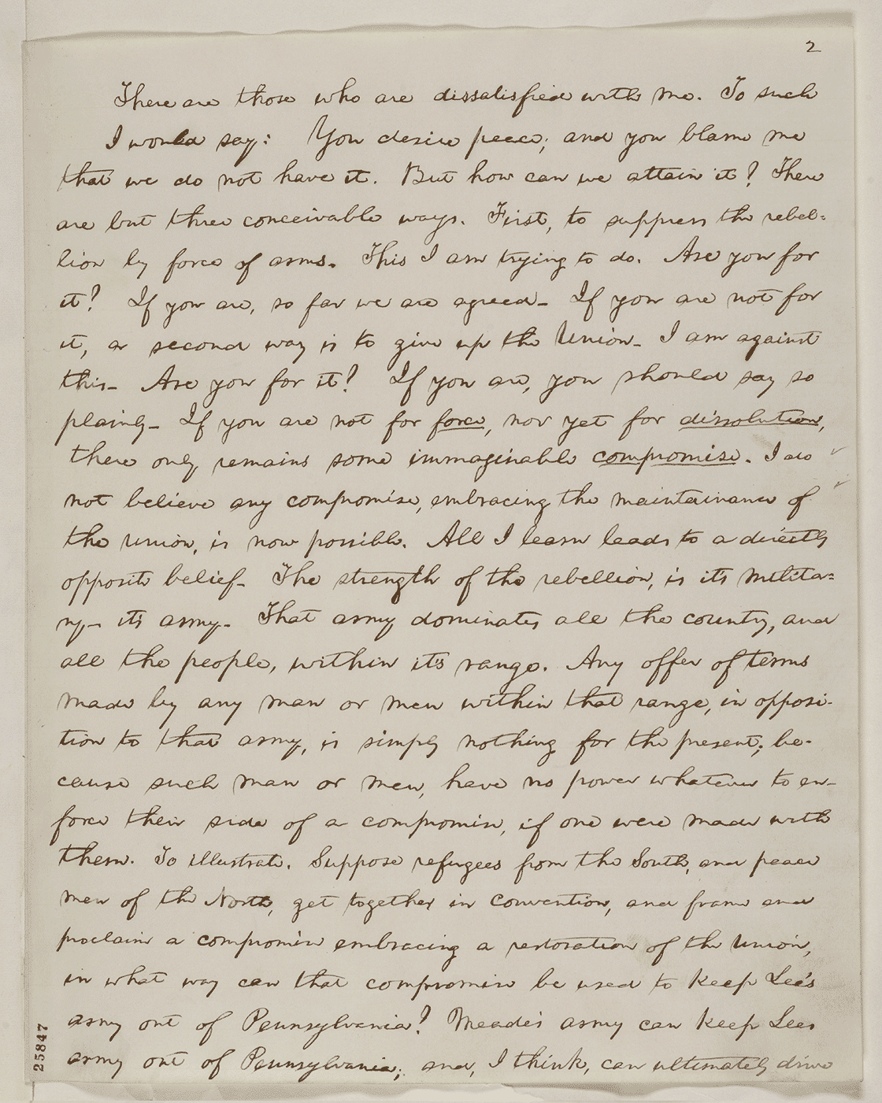 2
There are those who are dissatisfied with me. To such
I would say: You desire peace; and you blame me
that we do not have it. But how can we attain it? There
are but three conceivable ways. First, to suppress the rebel-
lion by force of arms. This I am trying to do. Are you for
it? If you are, so far we are agreed. If you are not for
it, a second way is to give up the Union. I am against
this. Are you for it? If you are, you should say so
plainly. If you are not for force, nor yet for dissolution,
there only remains some immaginable compromise. I do
not believe any compromise, embracing the maintainance of
the Union, is now possible. All I learn leads to a directly
opposite belief. The strength of the rebellion, is its milita-
ry- its army. That army dominates all the country, and
all the people, within its range. Any offer of terms
made by any man or men within that range, in opposi-
tion to that army, is simply nothing for the present; be-
cause such man or men, have no power whatever to en-
force their side of a compromise, if one were made with
them. To illustrate. Suppose refugees from the South, and peace
men of the North, get together in convention, and frame and
proclaim a compromise embracing a restoration of the Union,
in what way can that compromise be used to keep Lee's
army out of Pennsylvania? Meade's army can keep Lees
army out of Pennsylvania; and, I think, can ultimately drive
25847